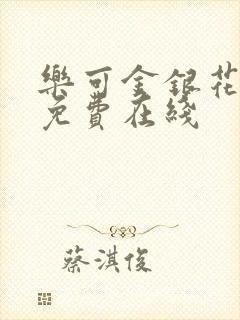 樂可金銀花
免費在綫
蔡淇俊